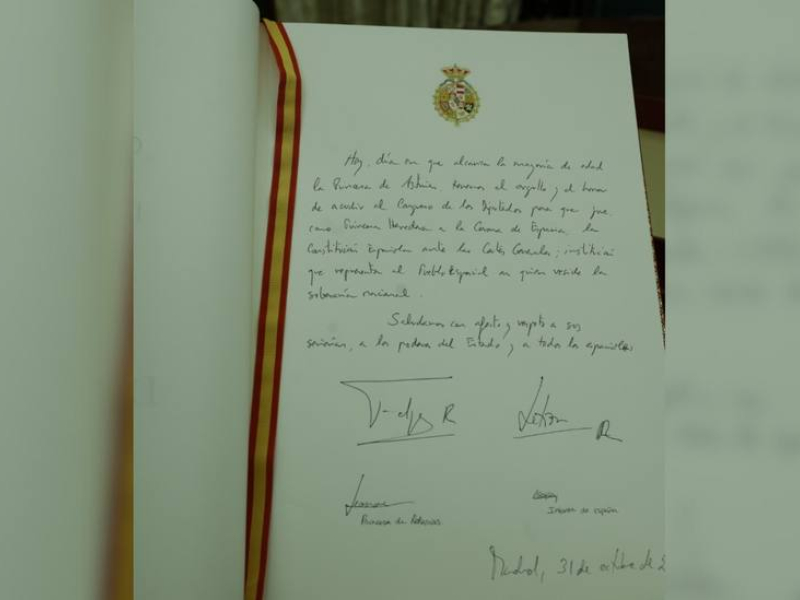 Hoy, día en que alcanza la mayoría de edad
la Princesa de Asturias, tenemos el orgullo y el honor
de acudir al Congreso de los Diputados para que jure
como Princesa Heredera a la Corona de España, la
Constitución Española ante las Cortes Generales; institución
que representa al Pueblo Español en quien reside la
soberanía nacional.
Saludamos con afecto y respeto a sus
señorías, a los poderes del Estado y a todos los españoles
Felipe R
Letizia R
Leonor
Princesa de Asturias
Infanta de España
Madrid, 31 de octubre de 2